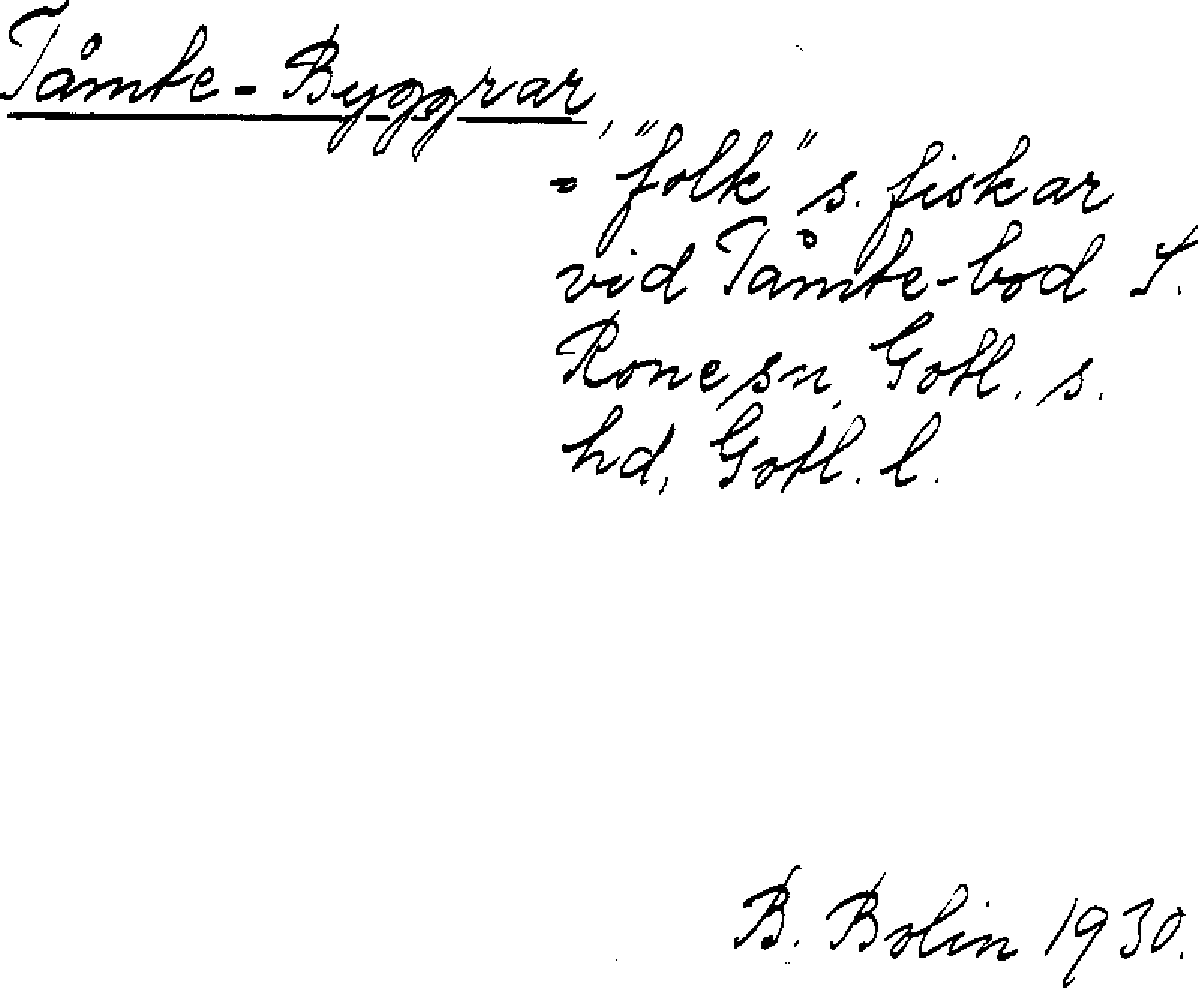 Tåmte-Byggrar,
= "folk" s. fiskar
vid Tåmte-bod I.
Rone sn, Gotl. s.
hd, Gotl. l.
B. Bolin 1930.